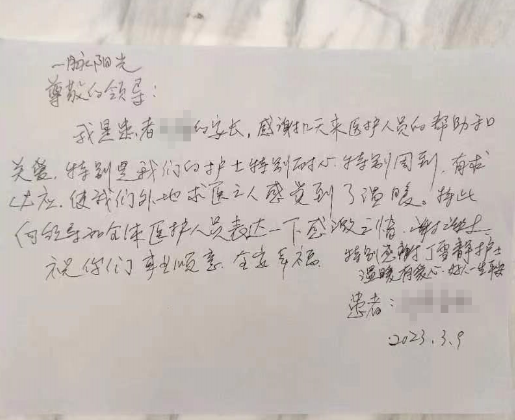 一脉阳光
尊敬的领导：
我是患者的家长，感谢几天来医护人员的帮助和
关爱，特别是我们的护士特别耐心特别周到，有求
必应，使我们外地求医之人感觉到了温暖。特此
向领导和全体医护人员表达一下感激之情，谢谢护士
祝你们事业顺意，全家幸福
特别感谢丁雪静护士
温暖有爱心，好人一生平安
患者：
2023.3.9